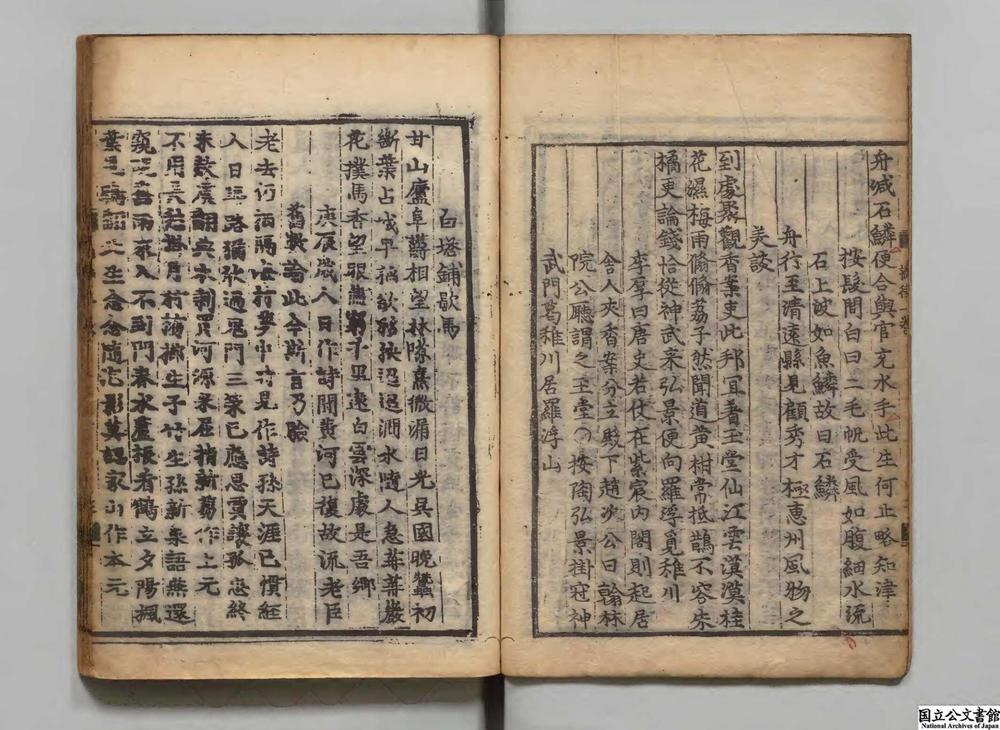 舟堿石鱗便合與官充水手此生何止略知津
按髮間白曰二毛帆受風如腹細水流
石上皮如魚鱗故曰石鱗
舟行至清遠縣見顧秀才極惠州風物之
美談
到處聚觀香案吏此邦宜着玉堂仙江雲漠漠桂
花濕梅雨翛翛荔子然聞道黄柑常抵鵲不容朱
橘更論錢恰從神武来弘景便向羅浮覓稚川
李厚曰唐史若仗在紫宸内閣則起居
舍人夾香案分立殿下趙次公曰翰林
院公廳謂之玉堂〇按陶弘景掛冠神
武門葛稚川居羅浮山
白塔鋪歇馬
甘山廬阜鬱相望林隙熹微漏日光吳國晚蠶初
斷葉占城早稲欲移秧迢迢澗水隨人急冉冉巖
花撲馬香望眼盡窮千里遠白雲深處是吾鄉
庚辰歲人日作詩聞黄河已復故流老臣
舊數論此今斯言乃驗
老去仍 隔海 夢中時見作詩孫天涯已慣 
人日 路猶欣過鬼門三策已應思賈讓孤忠終
未赦虞翻典衣剩買河源米屈指新蒭作上元
不用長愁掛月村檳榔生子竹生孫新 語燕還
窺硯舊雨来人不到門春水蘆根看鶴立夕陽楓
葉見鴉翻 生念念隨泡影莫認家山作本元
国立公文書館
National Archives of Japan